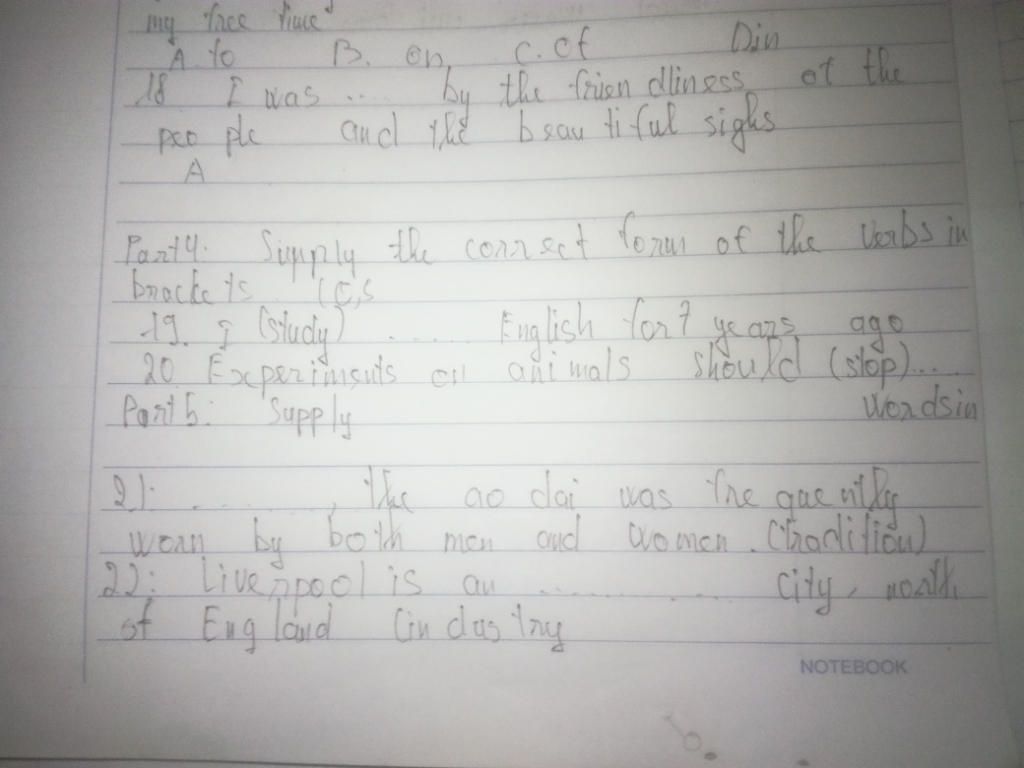 my free time
A. to B. on C. of D in
18 I was ... by the friendliness of the
people and the beautiful sighs
A
Part 4: Supply the correct form of the verbs in
brackets
19. I (study) ...... English for 7 years ago
20 Experiments on animals should (stop)....
Part 5: Supply words in
21: .........., the ao dai was frequently
worn by both men and women. (tradition)
22: Liverpool is an .............. city, north
of England (industry
NOTEBOOK